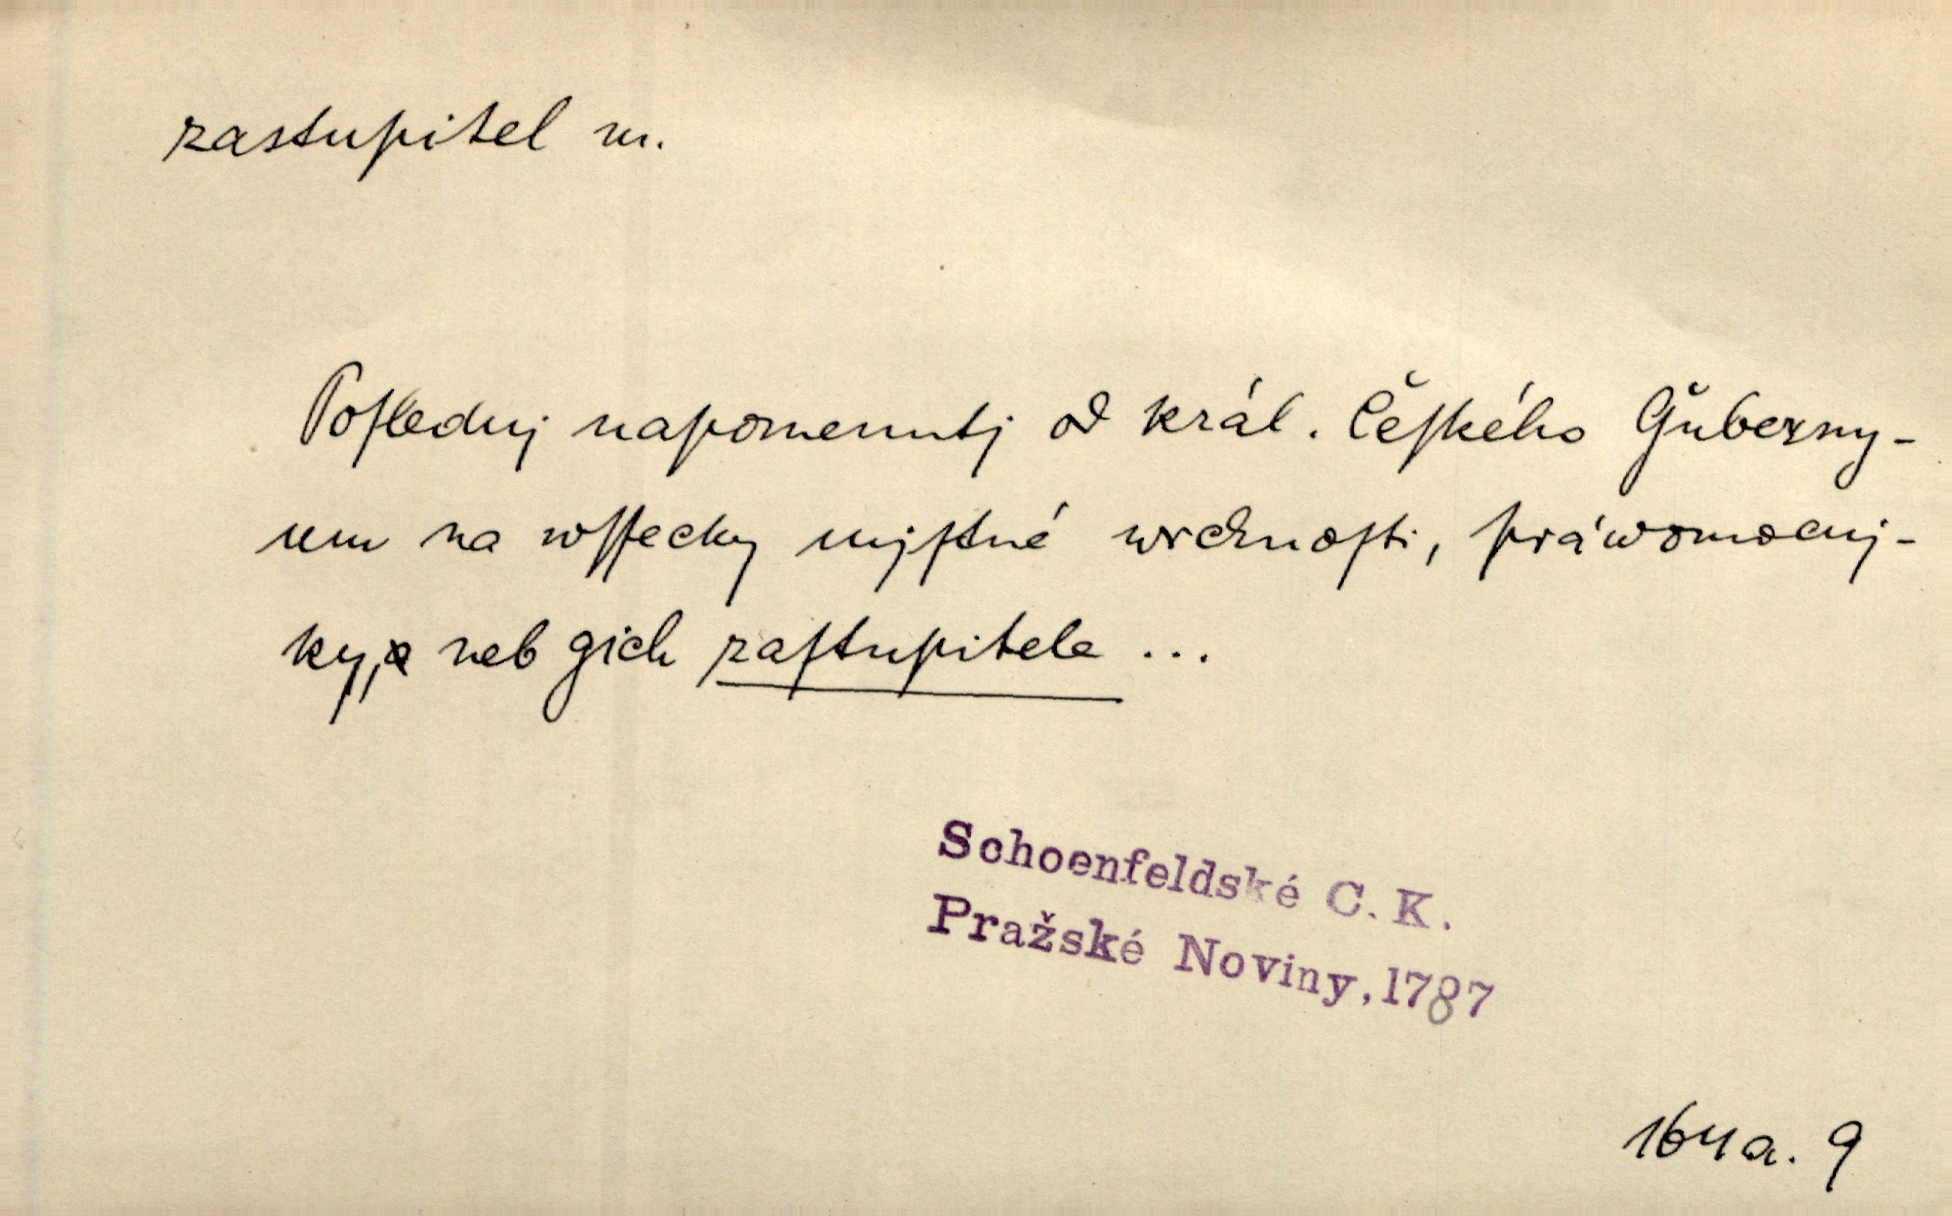 zastupitel m.
Poſlednj napomenutj od král. Čeſkého Gůberny-
um na wſſecky mjſtné wrchnoſti, práwomocnj-
ky, neb gich zaſtupitele ...
Schoenfeldské C. K.
Pražské Noviny, 1787
164a. 9